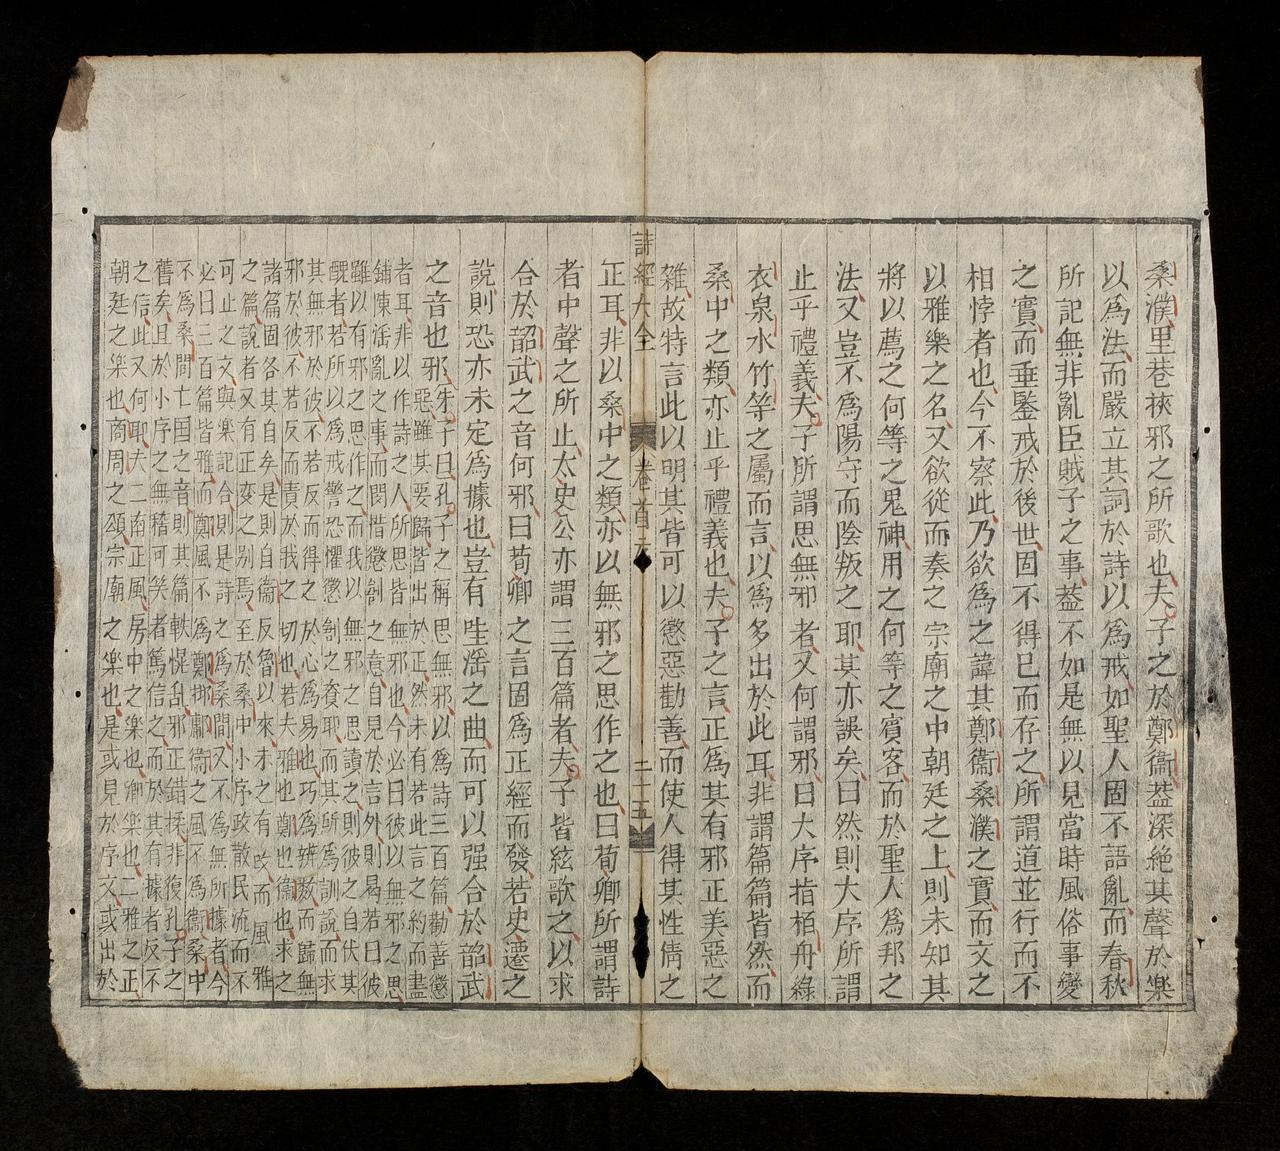 桑濮里巷挾邪之所歌也夫子之於鄭衞葢深絶其聲於樂
以爲法而嚴立其詞於詩以爲戒如聖人固不語亂而春秋
所記無非亂臣賊子之事葢不如是無以見當時風俗事變
之實而垂鑒戒於後世固不得已而存之所謂道並行而不
相悖者也今不察此乃欲爲之諱其鄭衞桑濮之實而文之
以雅樂之名又欲從而奏之宗廟之中朝廷之上則未知其
將以薦之何等之鬼神用之何等之賓客而於聖人爲邦之
法又豈不爲陽守而陰叛之耶其亦誤矣曰然則大序所謂
止乎禮義夫子所謂思無邪者又何謂邪曰大序指栢舟綠
衣泉水竹等之屬而言以爲多出於此耳非謂篇篇皆然而
桑中之類亦止乎禮義也夫子之言正爲其有邪正美惡之
雜故特言此以明其皆可以懲惡勸善而使人得其性情之
詩經大全 卷首 二十五
正耳非以桑中之類亦以無邪之思作之也曰荀卿所謂詩
者中聲之所止太史公亦謂三百篇者夫子皆絃歌之以求
合於韶武之音何邪曰荀卿之言固爲正經而發若史遷之
說則恐亦未定爲據也豈有哇淫之曲而可以强合於韶武
之音也邪朱子曰孔子之稱思無邪以爲詩三百篇勸善懲
惡雖其要歸皆出於正然未有若此言之約而盡
者耳非以作詩之人所思皆無邪也今必曰彼以無邪之思
鋪陳淫亂之事而閔惜懲創之意自見於言外則曷若曰彼
雖以有邪之思作之而我以無邪之思讀之則彼之自伏其
醜者若所以爲戒警恐懼懲創之資耶而其所爲訓說而求
其無邪於彼不若反而得之於心爲易也巧爲辨數而歸無
邪於彼不若反而責於我之切也若夫雅也鄭也衞也求之
諸篇固各其自矣是則自衞反魯以來未之有改而風雅
之篇說者又有正変之别焉至於桑中小序政散民流而不
可止之文與樂記合則是詩之爲桑間又不爲無所據者今
必曰三百篇皆雅而鄭風不爲鄭邶鄘衞之風不爲衞桑中
不爲桑間亡国之音則其篇帙混乱邪正錯揉非復孔子之
舊矣且於小序之無稽可笑者篤信之而於其有據者反不
之信此又何耶夫二南正風房中之樂也鄉樂也二雅之正
朝廷之樂也商周之頌宗廟之樂也是或見於序文或出於